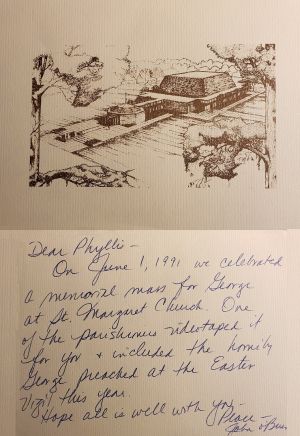 Dear Phyllis -
On June 1, 1991 we celebrated
a memorial mass for George
at St. Margaret Church. One
of the parishioners videotaped it
for you + included the homily
George preached at the Easter
Vigil this year.
Hope all is well with you -
Peace -
John O'Brien